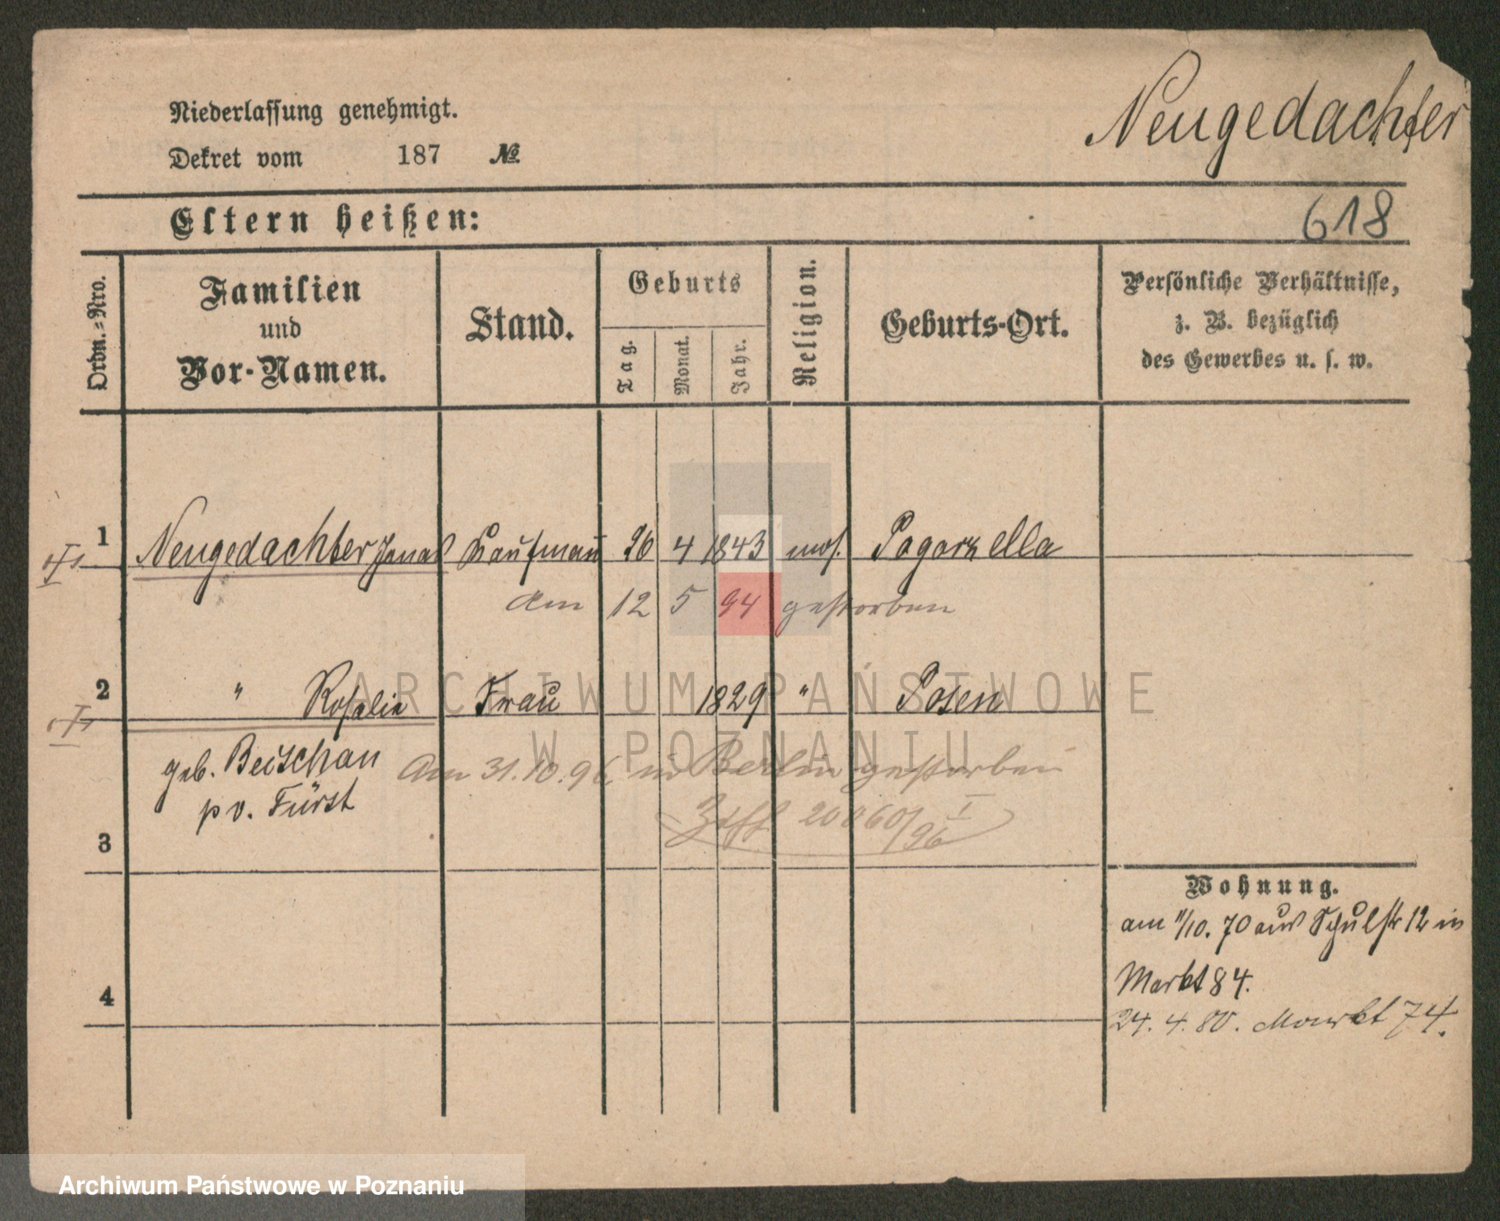 Neugedachter
Niederlassung genehmigt.
Dekret vom 187 №
Eltern heißen:
618
Ordn.-Nro.
Familien
und
Vor-Namen.
Stand.
Geburts
Tag.
Monat.
Jahr.
Religion.
Geburts-Ort.
Persönliche Verhältnisse,
z. B. bezüglich
des Gewerbes u. s. w.
1 Neugedachter Jonas Kaufmann 26 4 1843 mos. Pogorzella
am 12 5 94 gestorben
2 " Rosalie Frau 1829 " Posen
geb. Beischau
p v. Fürst
Am 31.10.96 in Berlin gestorben
20060/96 I
3
Wohnung.
am 11/10. 70 aus Schulstr 12 in
Markt 84.
24. 4. 80. Markt 74.
4
ARCHIWUM PAŃSTWOWE
W POZNANIU
Archiwum Państwowe w Poznaniu